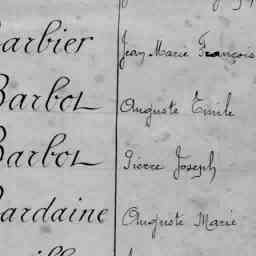 Barbier Jean Marie François
Barbot Auguste Emile
Barbot Pierre Joseph
Bardaine Auguste Marie